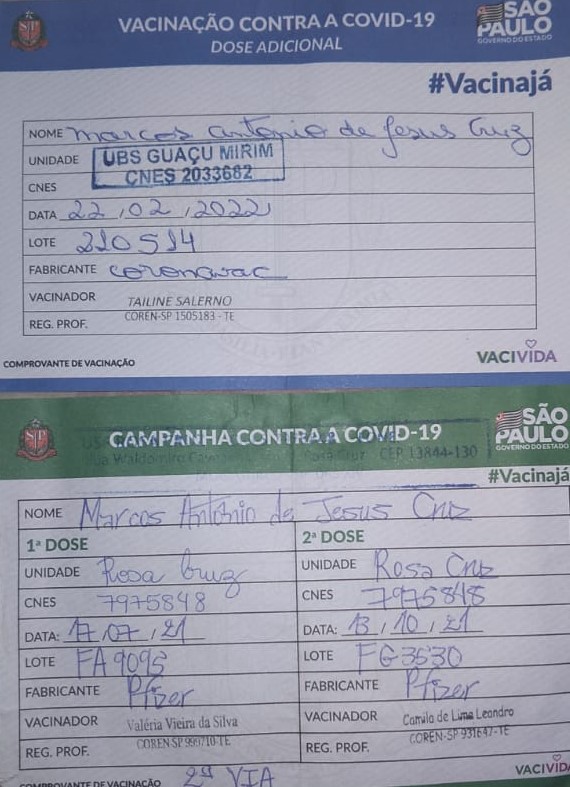 VACINAÇÃO CONTRA A COVID-19
DOSE ADICIONAL
SÃO PAULO
GOVERNO DO ESTADO
#Vacinajá
NOME Marcos Antonio de Jesus Cruz
UNIDADE UBS GUAÇU MIRIM
CNES CNES 2033682
DATA 22/02/2022
LOTE 210514
FABRICANTE coronavac
VACINADOR TAILINE SALERNO
REG. PROF. COREN-SP 1505183 - TE
COMPROVANTE DE VACINAÇÃO
VACIVIDA
CAMPANHA CONTRA A COVID-19
CEP 13844-130
SÃO PAULO
GOVERNO DO ESTADO
#Vacinajá
NOME Marcos Antônio de Jesus Cruz
1ª DOSE
UNIDADE Rosa Cruz
CNES 7975848
DATA: 17/07/21
LOTE FA9095
FABRICANTE Pfizer
VACINADOR Valéria Vieira da Silva
REG. PROF. COREN SP 999710-TE
2ª DOSE
UNIDADE Rosa Cruz
CNES 7975848
DATA: 13/10/21
LOTE FG3530
FABRICANTE Pfizer
VACINADOR Camila de Lima Leandro
REG. PROF. COREN-SP 931647-TE
COMPROVANTE DE VACINAÇÃO 2ª VIA
VACIVIDA